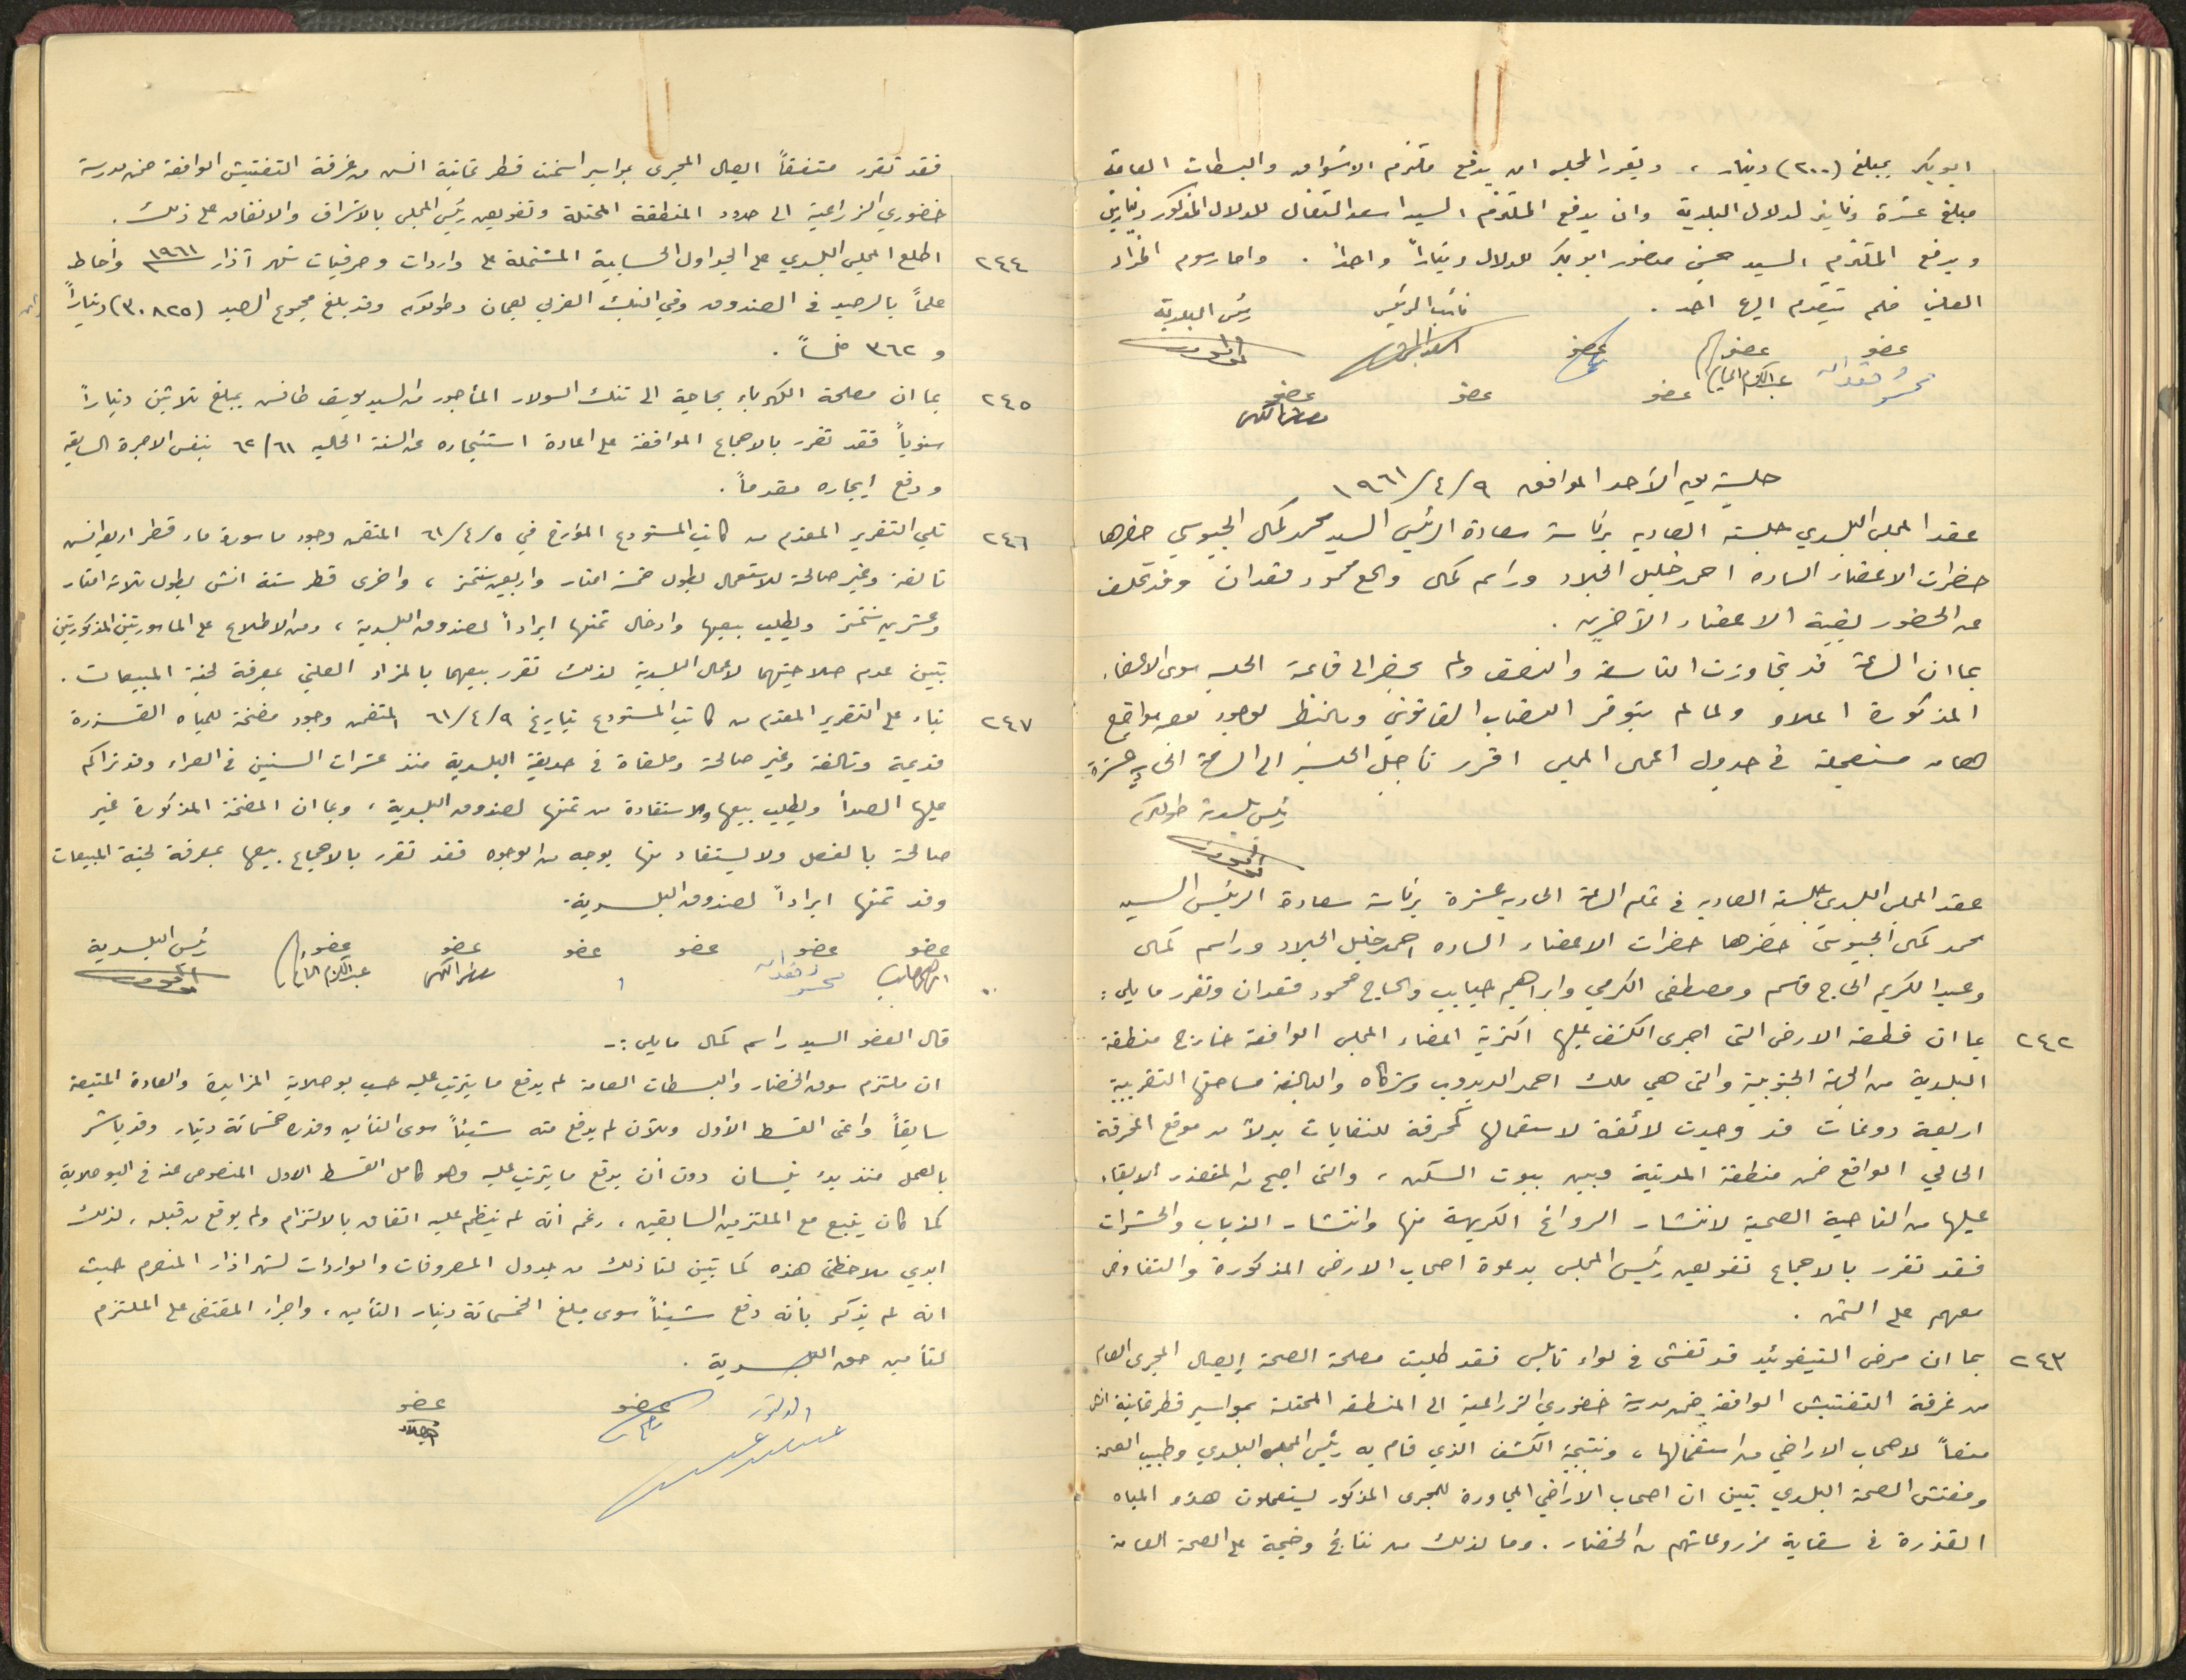 ابو بكر بمبلغ (٢٠٠) دينار ، وتقرر المجلس ان يدفع ملتزم الاسواق والبسطات العامة
مبلغ عشرة دنانير لدلال البلدية وان يدفع الملتزم السيد اسعد التفال للدلال المذكور دينارين
ويدفع الملتزم السيد حسني منصور ابو بكر للدلال ديناراً واحداً . واما رسوم المزاد
العلني فلم يتقدم اليها احد .
نائب الرئيس رئيس البلدية
عضو عضو عضو
عضو عضو عضو
جلسة يوم الأحد الموافق ٩/٤/١٩٦١
عقد المجلس البلدي جلسته العاديه برئاسة سعادة الرئيس السيد محمد كمال الجيوسي حضرها
حضرات الاعضاء الساده احمد خليل الجلاد وراسم كمال والحاج محمود فقدان وقد تخلف
عن الحضور بقية الاعضاء الآخرين .
بما ان الساعة قد تجاوزت التاسعة والنصف ولم يحضر الى قاعة الجلسه سوى الاعضاء
المذكورة اعلاه ولما لم يتوفر النصاب القانوني وبالنظر لوجود بعض مواضيع
هامه مستعجلة في جدول اعمال المجلس اقرر تأجيل الجلسة الى الساعة الحادية عشرة
رئيس بلدية طولكرم
عقد المجلس البلدي جلسته العاديه في تمام الساعة الحاديه عشرة برئاسة سعادة الرئيس السيد
محمد كمال الجيوسي حضرها حضرات الاعضاء الساده احمد خليل الجلاد وراسم كمال
وعبد الكريم الحاج قاسم ومصطفى الكرمي وابراهيم حبايب والحاج محمود فقدان وتقرر ما يلي :
٢٤٢ بما ان قطعة الارض التي اجرى الكشف عليها اكثرية اعضاء المجلس الواقعة خارج منطقة
البلدية من الجهة الجنوبية والتي هي ملك احمد الديدوب وشركاه والبالغة مساحتها التقريبية
اربعة دونمات قد وجدت لائقة لاستعمالها كمحرقة للنفايات بدلاً من موقع المحرقة
الحالي الواقع ضمن منطقة المدينة وبين بيوت السكن ، والتي اصبح من المتعذر الابقاء
عليها من الناحية الصحية لانتشار الروائح الكريهة منها وانتشار الذباب والحشرات
فقد تقرر بالاجماع تفويض رئيس المجلس بدعوة اصحاب الارض المذكورة والتفاوض
معهم على الثمن .
٢٤٣ بما ان مرض التيفوئيد قد تفشى في لواء نابلس فقد طلبت مصلحة الصحة ايصال المجرى العام
من غرفة التفتيش الواقعة ضمن مدرسة خضوري الزراعية الى المنطقة المحتلة بمواسير قطر ثمانية انش
منعاً لاصحاب الاراضي من استعمالها ، ونتيجة الكشف الذي قام به رئيس المجلس البلدي وطبيب الصحة
ومفتش الصحة البلدي تبين ان اصحاب الاراضي المجاورة للمجرى المذكور يستعملون هذه المياه
القذرة في سقاية مزروعاتهم من الخضار . وما لذلك من نتائج وخيمة على الصحة العامة
فقد تقرر متفقاً ايصال المجرى بمواسير اسمنت قطر ثمانية انش من غرفة التفتيش الواقعة ضمن مدرسة
خضوري الزراعية الى حدود المنطقة المحتلة وتفويض رئيس المجلس بالاشراف والانفاق على ذلك .
٢٤٤ اطلع المجلس البلدي على الجداول الحسابية المشتملة على واردات وصرفيات شهر آذار ١٩٦١ وأحاط
علماً بالرصيد في الصندوق وفي البنك العربي بعمان وطولكرم وقد بلغ مجموع الرصيد (٣٠٨٢٥) ديناراً
و ٣٦٢ فلساً .
٢٤٥ بما ان مصلحة الكهرباء بحاجة الى تنك السولار المأجور من السيد يوسف طافش بمبلغ ثلاثين ديناراً
سنوياً فقد تقرر بالاجماع الموافقة على اعادة استئجاره عن السنة الحاليه ٦١/٦٢ بنفس الاجرة السابقه
ودفع ايجاره مقدماً .
٢٤٦ تلي التقرير المقدم من كاتب المستودع المؤرخ في ٥/٤/٦١ المتضمن وجود ماسورة ماء قطر اربعة انش
تالفة وغير صالحة للاستعمال بطول خمسة امتار واربعين سنتمتر ، واخرى قطر ستة انش بطول ثلاثة امتار
وعشرين سنتمتر ويطلب بيعها وادخال ثمنها ايراداً لصندوق البلدية ، ومن الاطلاع على الماسورتين المذكورتين
تبين عدم صلاحيتهما لاعمال البلدية لذلك تقرر بيعهما بالمزاد العلني بمعرفة لجنة المبيعات .
٢٤٧ بناء على التقرير المقدم من كاتب المستودع بتاريخ ٩/٤/٦١ المتضمن وجود مضخة للمياه القذرة
قديمة وتالفة وغير صالحة وملقاة في حديقة البلدية منذ عشرات السنين في العراء وقد تراكم
عليها الصدأ ويطلب بيعها والاستفادة من ثمنها لصندوق البلدية ، وبما ان المضخة المذكورة غير
صالحة بالفعل ولا يستفاد منها بوجه من الوجوه فقد تقرر بالاجماع بيعها بمعرفة لجنة المبيعات
وقد ثمنها ايراداً لصندوق البلدية .
عضو عضو عضو عضو عضو عضو رئيس البلدية
قال العضو السيد راسم كمال ما يلي :-
ان ملتزم سوق الخضار والبسطات العامة لم يدفع ما يترتب عليه حسب بوصلاية المزايدة والعادة المتبعة
سابقاً واعني القسط الأول وللآن لم يدفع منه شيئاً سوى التأمين وقدره خمسمائة دينار وقد باشر
بالعمل منذ بدء نيسان دون أن يدفع ما يترتب عليه وهو كامل القسط الاول المنصوص عنه في البوصلاية
كما كان يتبع مع الملتزمين السابقين ، رغم أنه لم ينظم عليه اتفاق بالالتزام ولم يوقع من قبله ، لذلك
ابدي ملاحظتي هذه كما تبين لنا ذلك من جدول المصروفات والواردات لشهر اذار المنصرم حيث
انه لم يذكر بأنه دفع شيئاً سوى مبلغ الخمسمائة دينار التأمين ، واجراء المقتضى على الملتزم
لتأمين حق البلدية .
عضو عضو